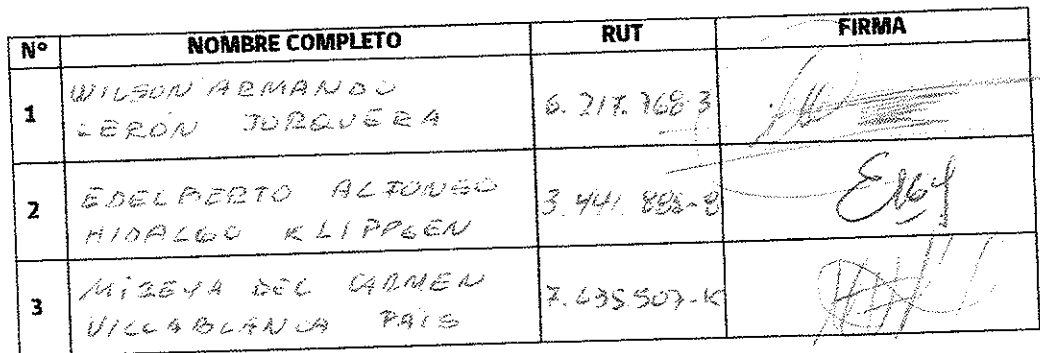 N° NOMBRE COMPLETO RUT FIRMA
1 WILSON ARMANDO
LERÓN JORQUERA 6.217.768-3
2 EDELBERTO ALFONSO
HIDALGO KLIPPGEN 3.441.888-8
3 MIREYA DEL CARMEN
VILLABLANCA PAIS 7.635.507-K